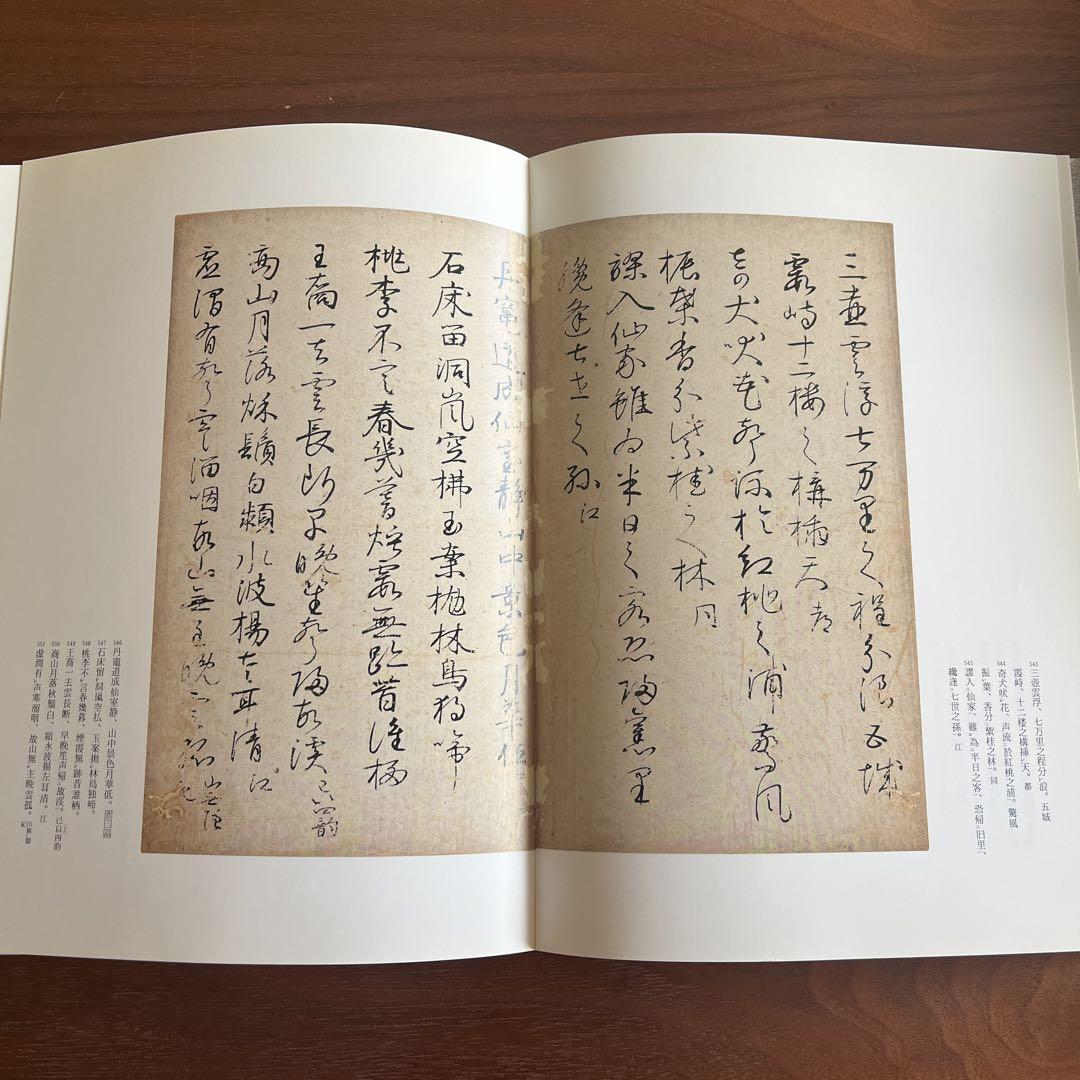 三壺雲浮七万里之程分浪五城
霞峙十二楼之構插天 都
奇犬吠花声流於紅桃之浦驚風
振葉香分紫桂之林 同
謬入仙家雖為半日之客恐帰旧里
纔逢七世之孫 江
丹竈道成仙室静山中景色月華低
石床留洞嵐空拂玉案抛林鳥独啼
桃李不言春幾暮煙霞無跡昔誰栖
王喬一去雲長断早晩笙声帰故渓 已上四韵
商山月落秋鬚白潁水波揚左耳清 江
虚澗有声寒溜咽故山無主晩雲孤 山無隠 紀
543 三壺雲浮、七万里之程分レ浪。五城
霞峙、十二楼之構挿レ天。 都
544 奇犬吠レ花、声流二於紅桃之浦一。驚風
振レ葉、香分二紫桂之林一。 同
545 謬入二仙家一、雖レ為二半日之客一、恐帰二旧里一、
纔逢二七世之孫一。 江
546 丹竈道成仙室静、山中景色月華低。
547 石床留レ洞嵐空払、玉案抛レ林鳥独啼。
548 桃李不レ言春幾暮、煙霞無レ跡昔誰栖。
549 王喬一去雲長断、早晩笙声帰二故渓一。已以四韵
550 商山月落秋鬚白、潁水波揚左耳清。 江
551 虚澗有レ声寒溜咽、故山無レ主晩雲孤。 紀